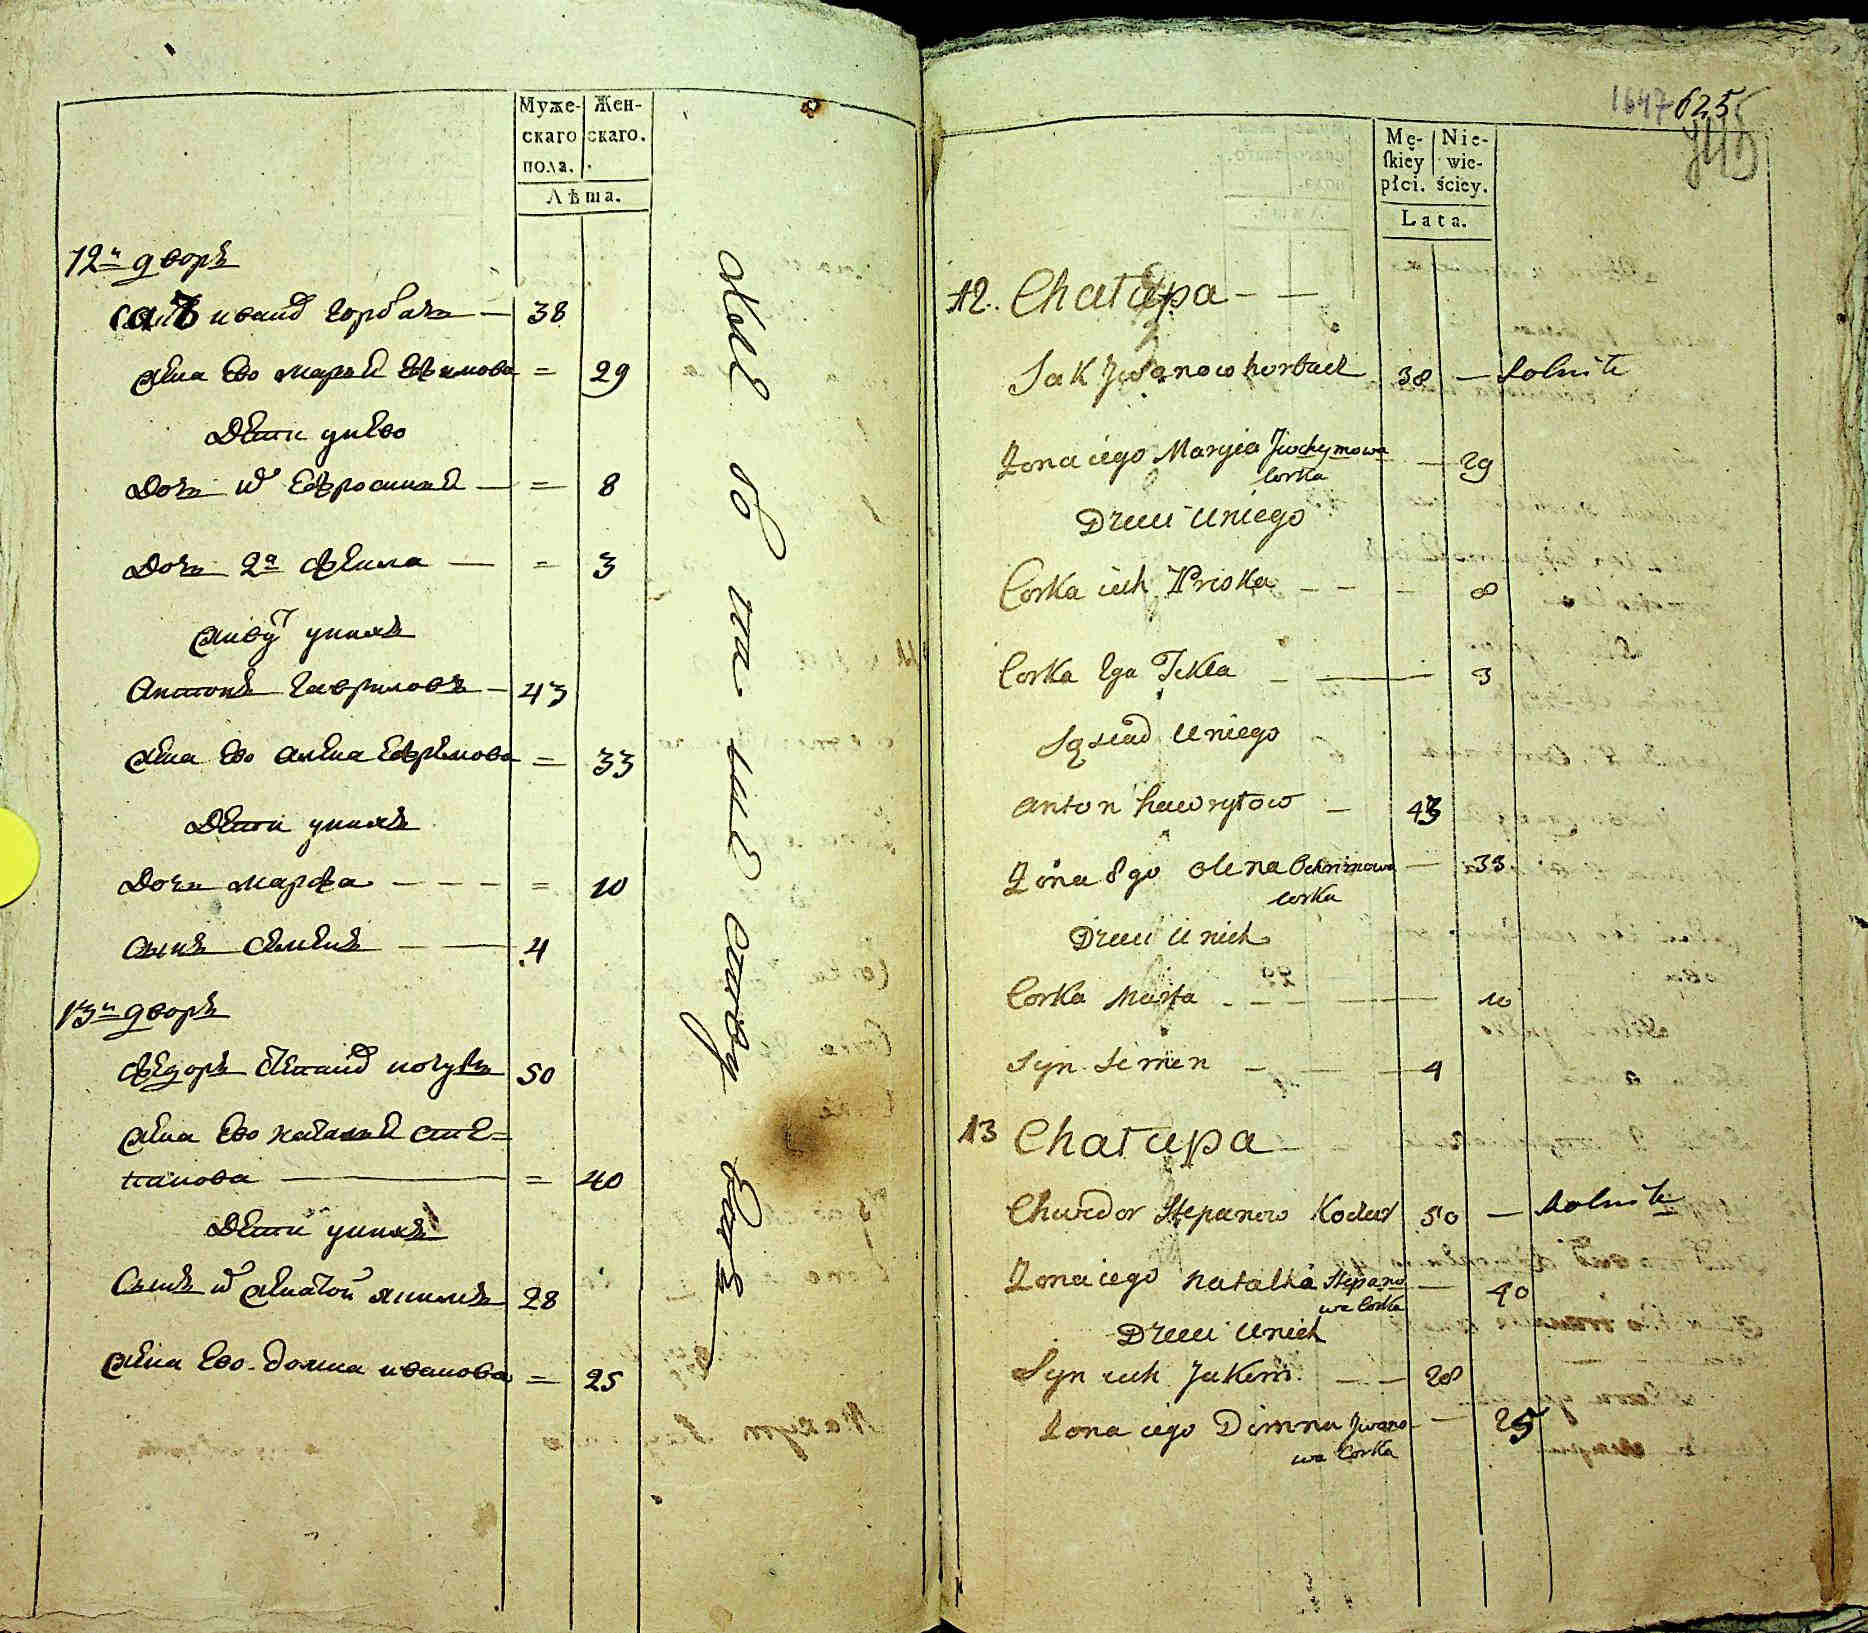 Муже-
скаго
пола.
Жен-
скаго.
Лѣта.
12й дворъ
Сакъ ивановъ горбачь — 38
жена Ево марья Ефимова = 29
Дети унево
Дочь 1я Ефросинья — = 8
Дочь 2я Фекла — = 3
живут унихъ
Антонъ Гавриловъ — 43
жена Ево Алена Ефремова = 33
Дети унихъ
Дочь марфа - - - = 10
сынъ семенъ — 4
13й дворъ
Федоръ Степановъ 50
жена Ево наталья сте=
панова — = 40
Дети унихъ
Сынъ 1й женатой якимъ 28
жена Ево домна иванова = 25
1647 625
Mę-
skiey
płci.
Nie-
wie-
ściey.
Lata.
12. Chatupa - —
Sak Jwanow horbacz 38 — Rolnik
Żona iego Maryia Jwchymowa — 29
Corka
Dzieci Uniego
Corka ich Pryska - - - 8
Corka 2ga Tekla - — 3
Sąsiad Uniego
Anton hawryłow — 43
Żona Jego Olena Ochrimowa — 33
Corka
Dzieci U nich
Corka Marfa - - - — 10
Syn Semen - — — 4
13 Chatupa
Chwedor Stepanow 50 — Rolnik
Żona iego Natalka Stepano — 40
wa Corka
Dzieci Unich
Syn ich Jakim — — 28
Żona iego Domna Jwano — 25
wa Corka